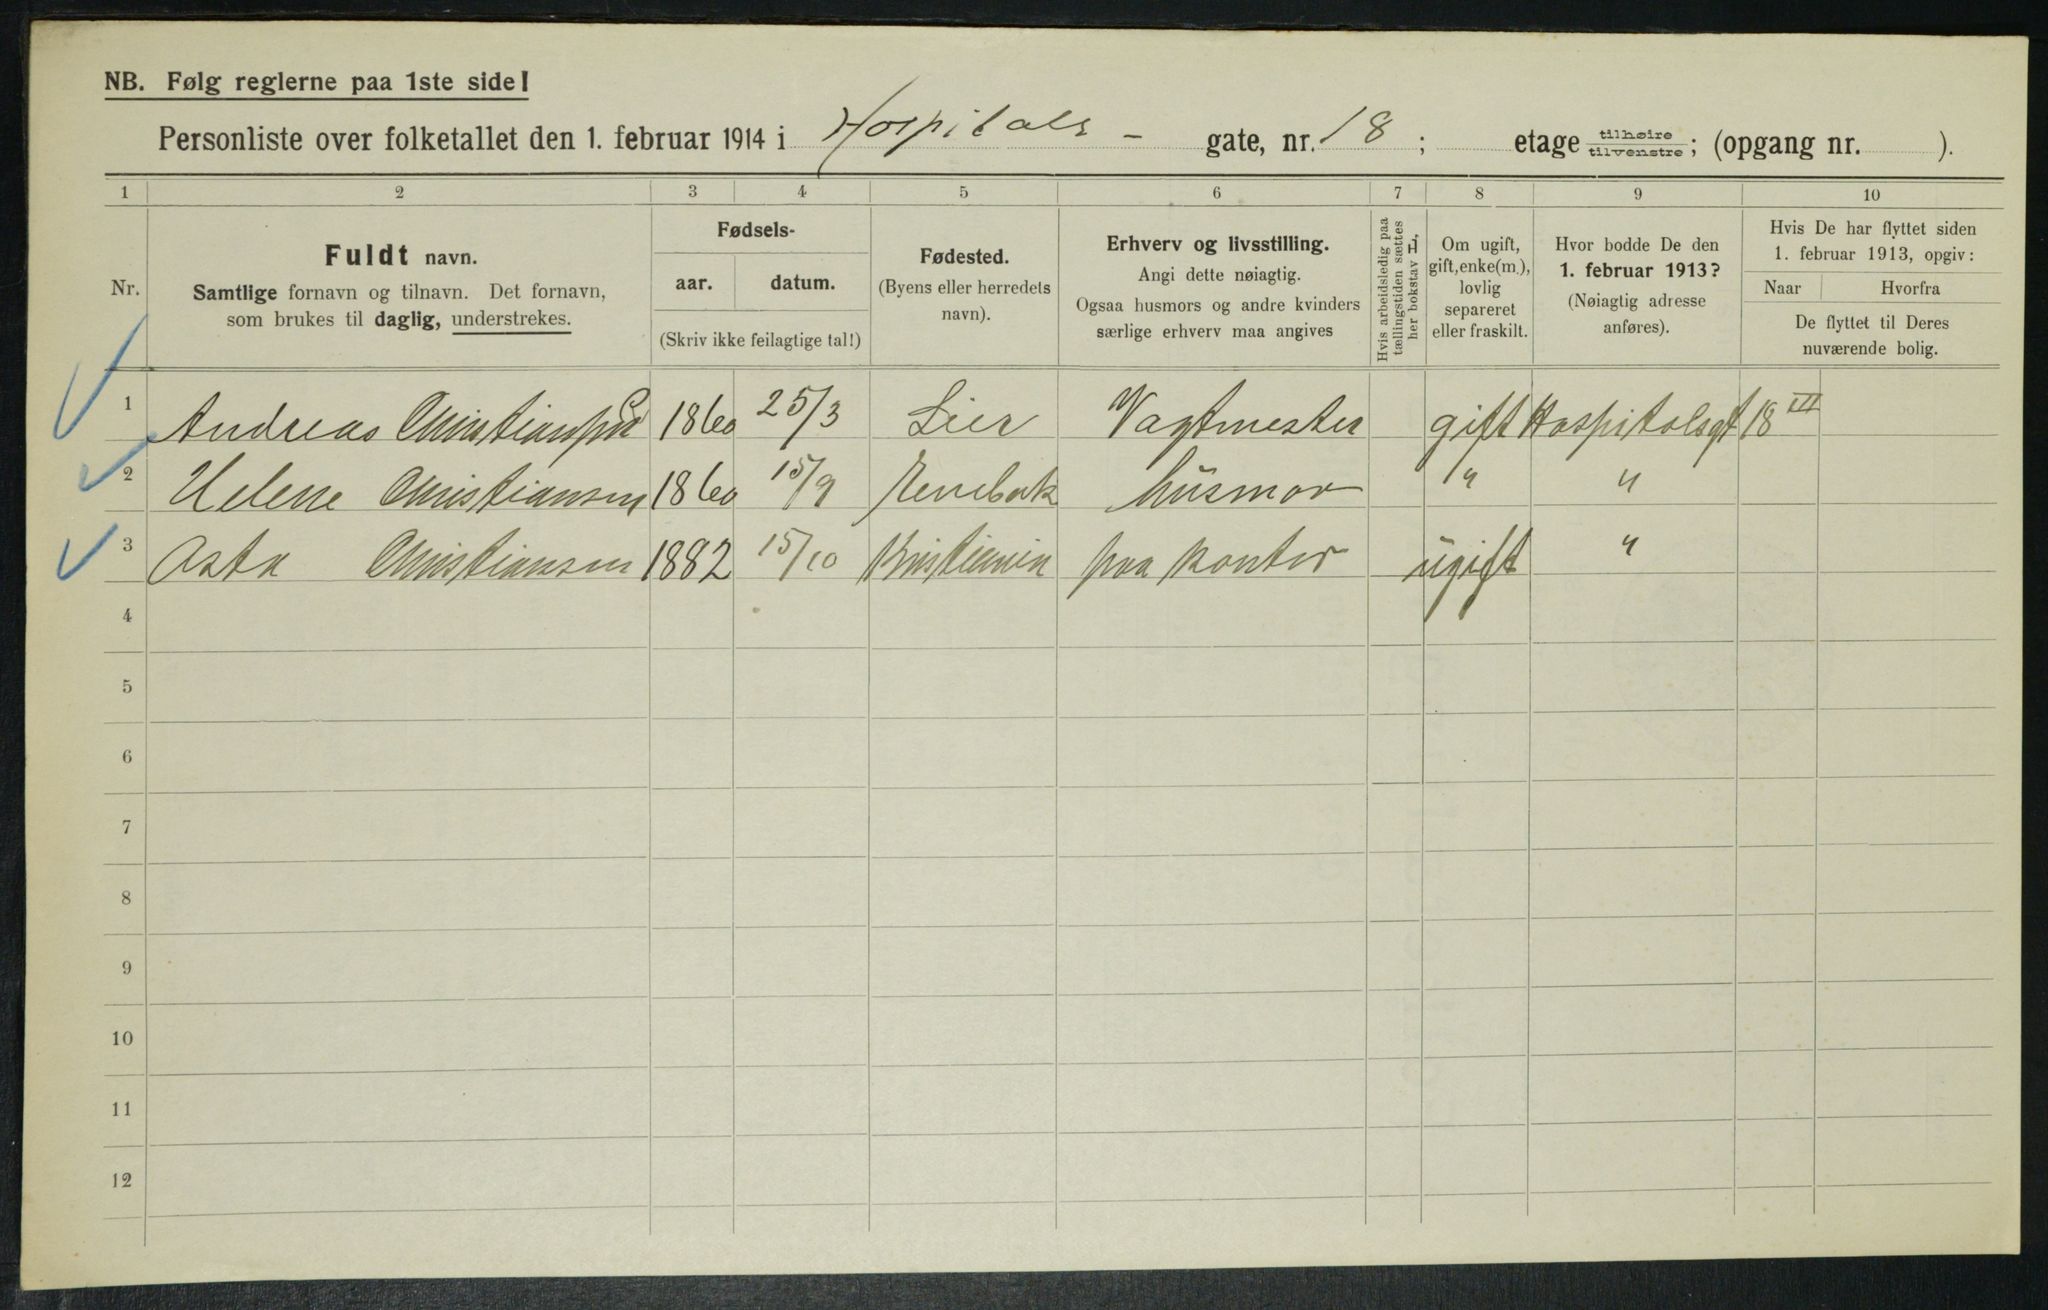 NB. Følg reglerne paa 1ste side!
Personliste over folketallet den 1. februar 1914 i Hospitals- gate, nr. 18; etage tilhøire/tilvenstre; (opgang nr. ).
1 2 3 4 5 6 7 8 9 10
Nr.
Fuldt navn.
Samtlige fornavn og tilnavn. Det fornavn,
som brukes til daglig, understrekes.
Fødsels-
aar. datum.
(Skriv ikke feilagtige tal!)
Fødested.
(Byens eller herredets
navn).
Erhverv og livsstilling.
Angi dette nøiagtig.
Ogsaa husmors og andre kvinders
særlige erhverv maa angives
Hvis arbeidsledig paa
tællingstiden sættes
her bokstav L,
Om ugift,
gift, enke(m.),
lovlig
separeret
eller fraskilt.
Hvor bodde De den
1. februar 1913?
(Nøiagtig adresse
anføres).
Hvis De har flyttet siden
1. februar 1913, opgiv:
Naar Hvorfra
De flyttet til Deres
nuværende bolig.
1 Andreas Christiansen 1860 25/3 Lier Vagtmester gift Hospitalsgt 18 III
2 Helene Christiansen 1860 15/9 Enebak husmor " "
3 Asta Christiansen 1882 15/10 Kristiania paa kontor ugift "
4
5
6
7
8
9
10
11
12